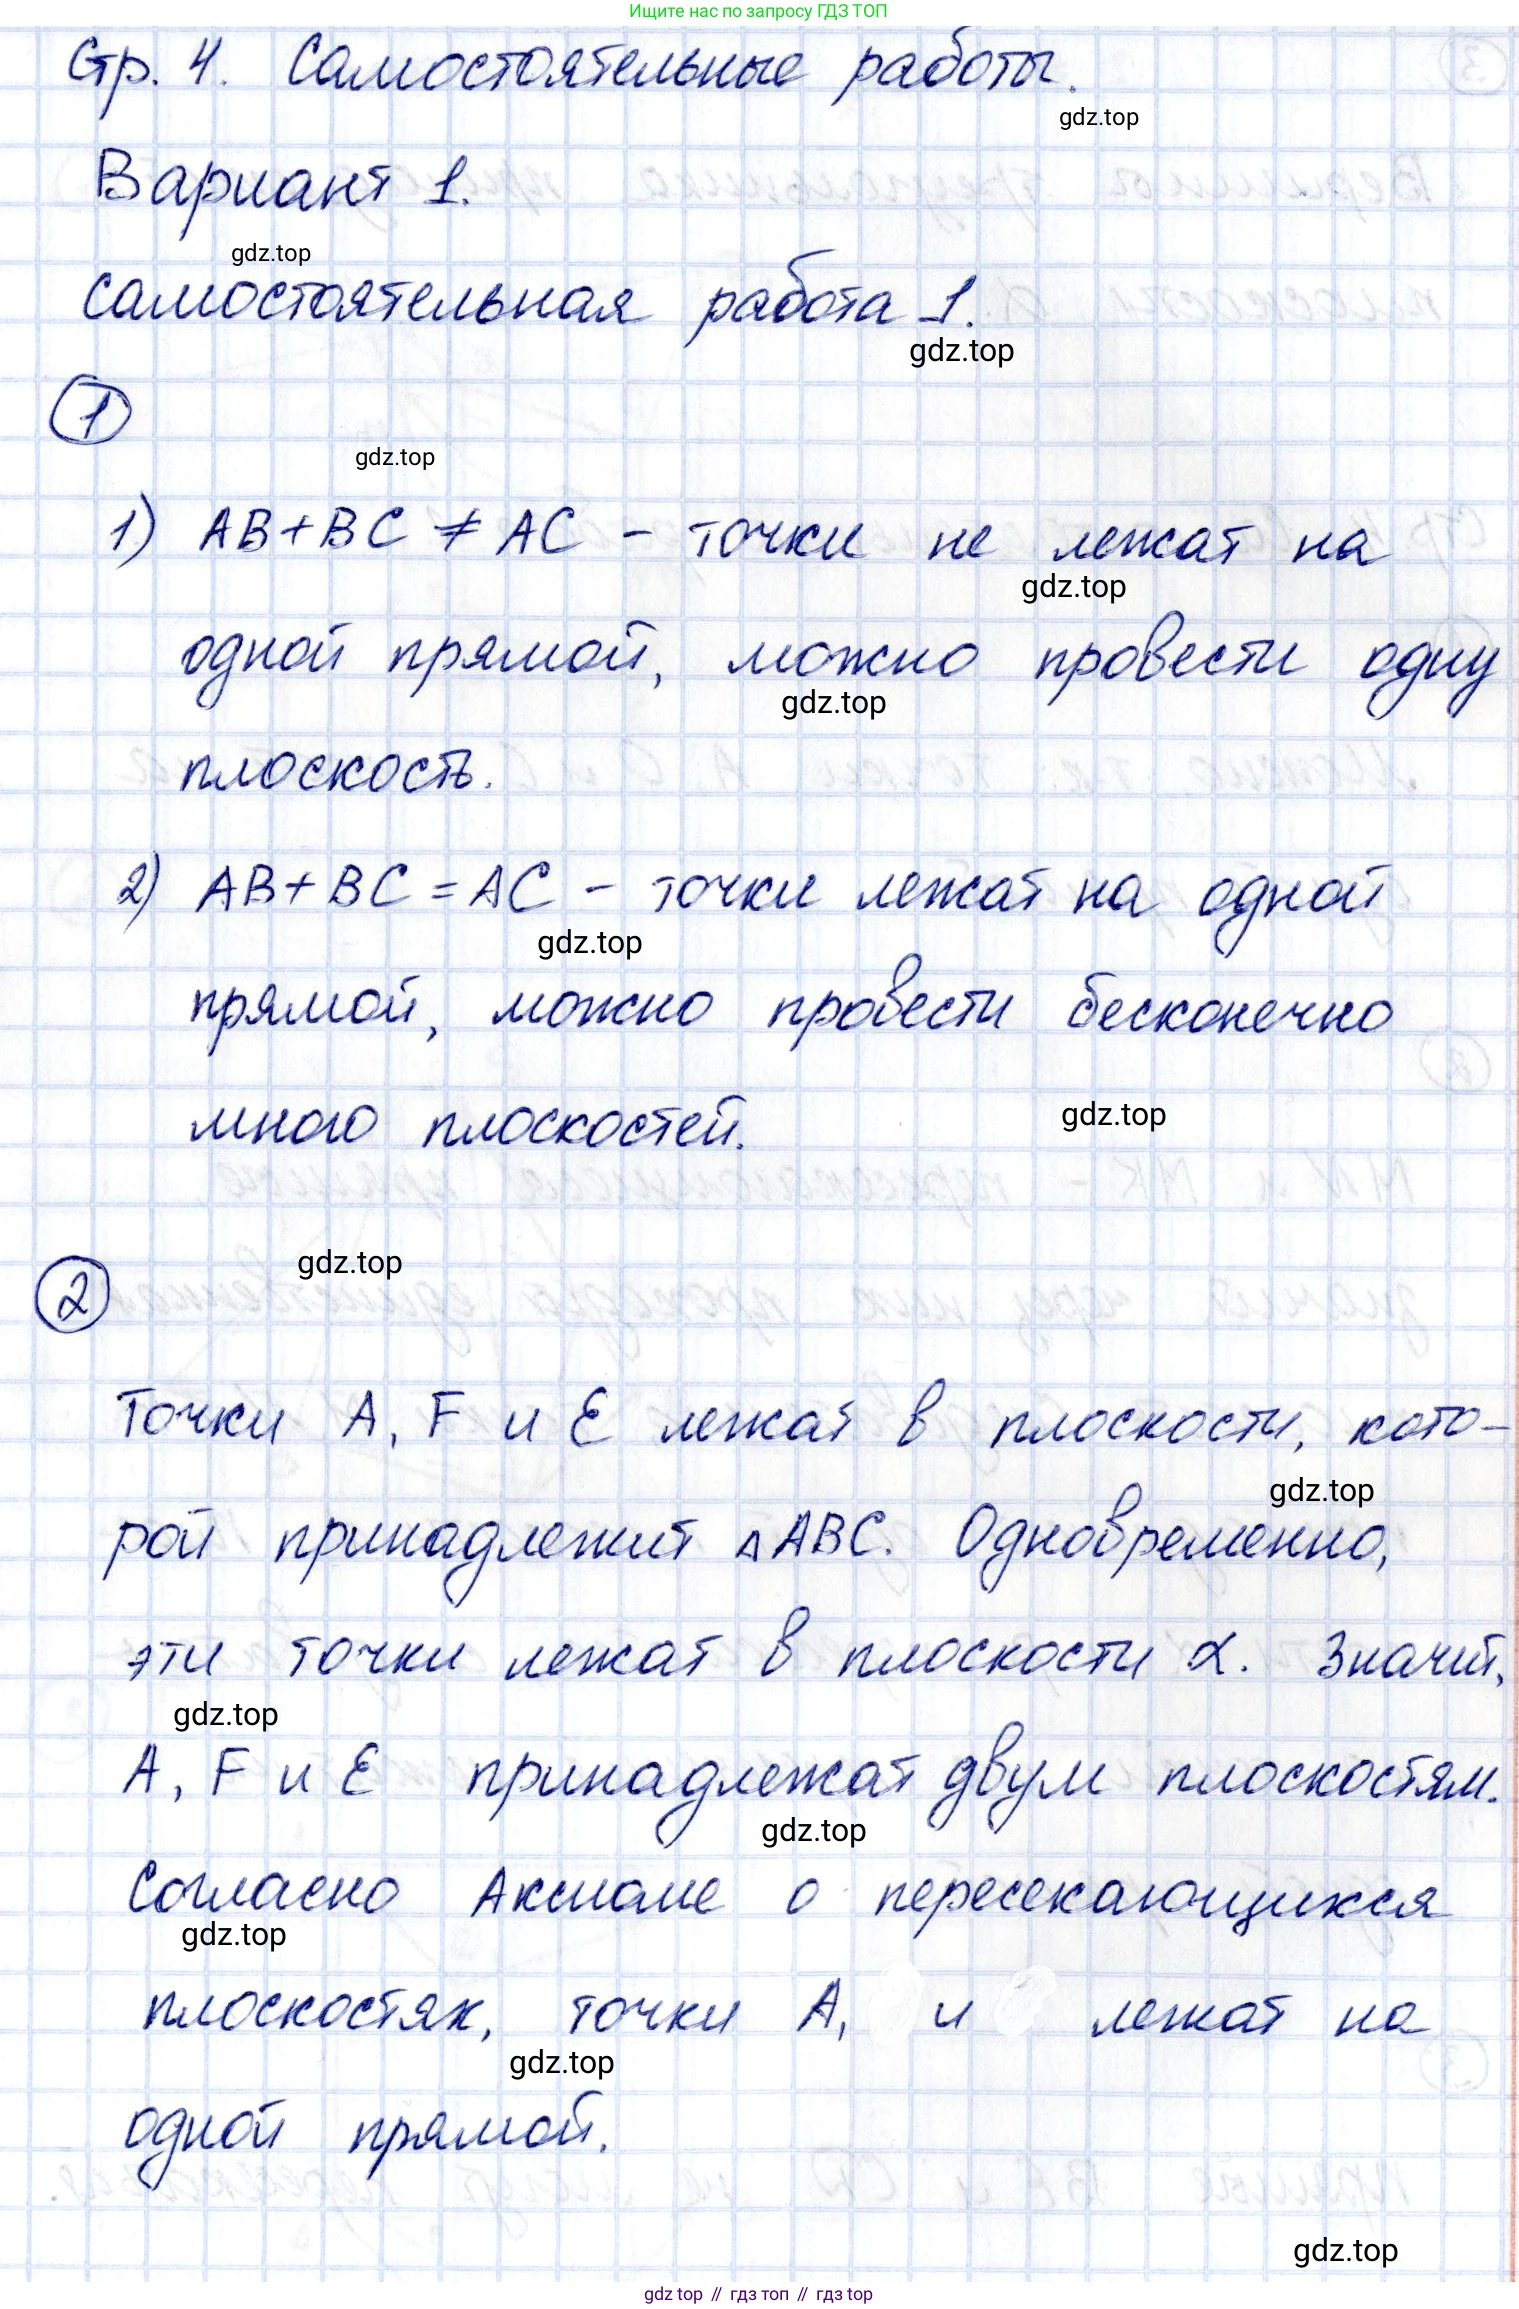 Ищите нас по запросу ГДЗ ТОП
Стр. 4. Самостоятельные работы.
gdz.top
Вариант 1.
gdz.top
Самостоятельная работа 1.
gdz.top
1
gdz.top
1) AB+BC ≠ AC – точки не лежат на
gdz.top
одной прямой, можно провести одну
gdz.top
плоскость.
2) AB+BC = AC – точки лежат на одной
gdz.top
прямой, можно провести бесконечно
много плоскостей.
gdz.top
gdz.top
2
Точки A, F и E лежат в плоскости, кото-
gdz.top
рой принадлежит △ABC. Одновременно,
эти точки лежат в плоскости α. Значит,
gdz.top
A, F и E принадлежат двум плоскостям.
gdz.top
Согласно Аксиоме о пересекающихся
gdz.top
плоскостях, точки A, и лежат на
gdz.top
одной прямой.
gdz.top
gdz top // гдз топ // гдз top